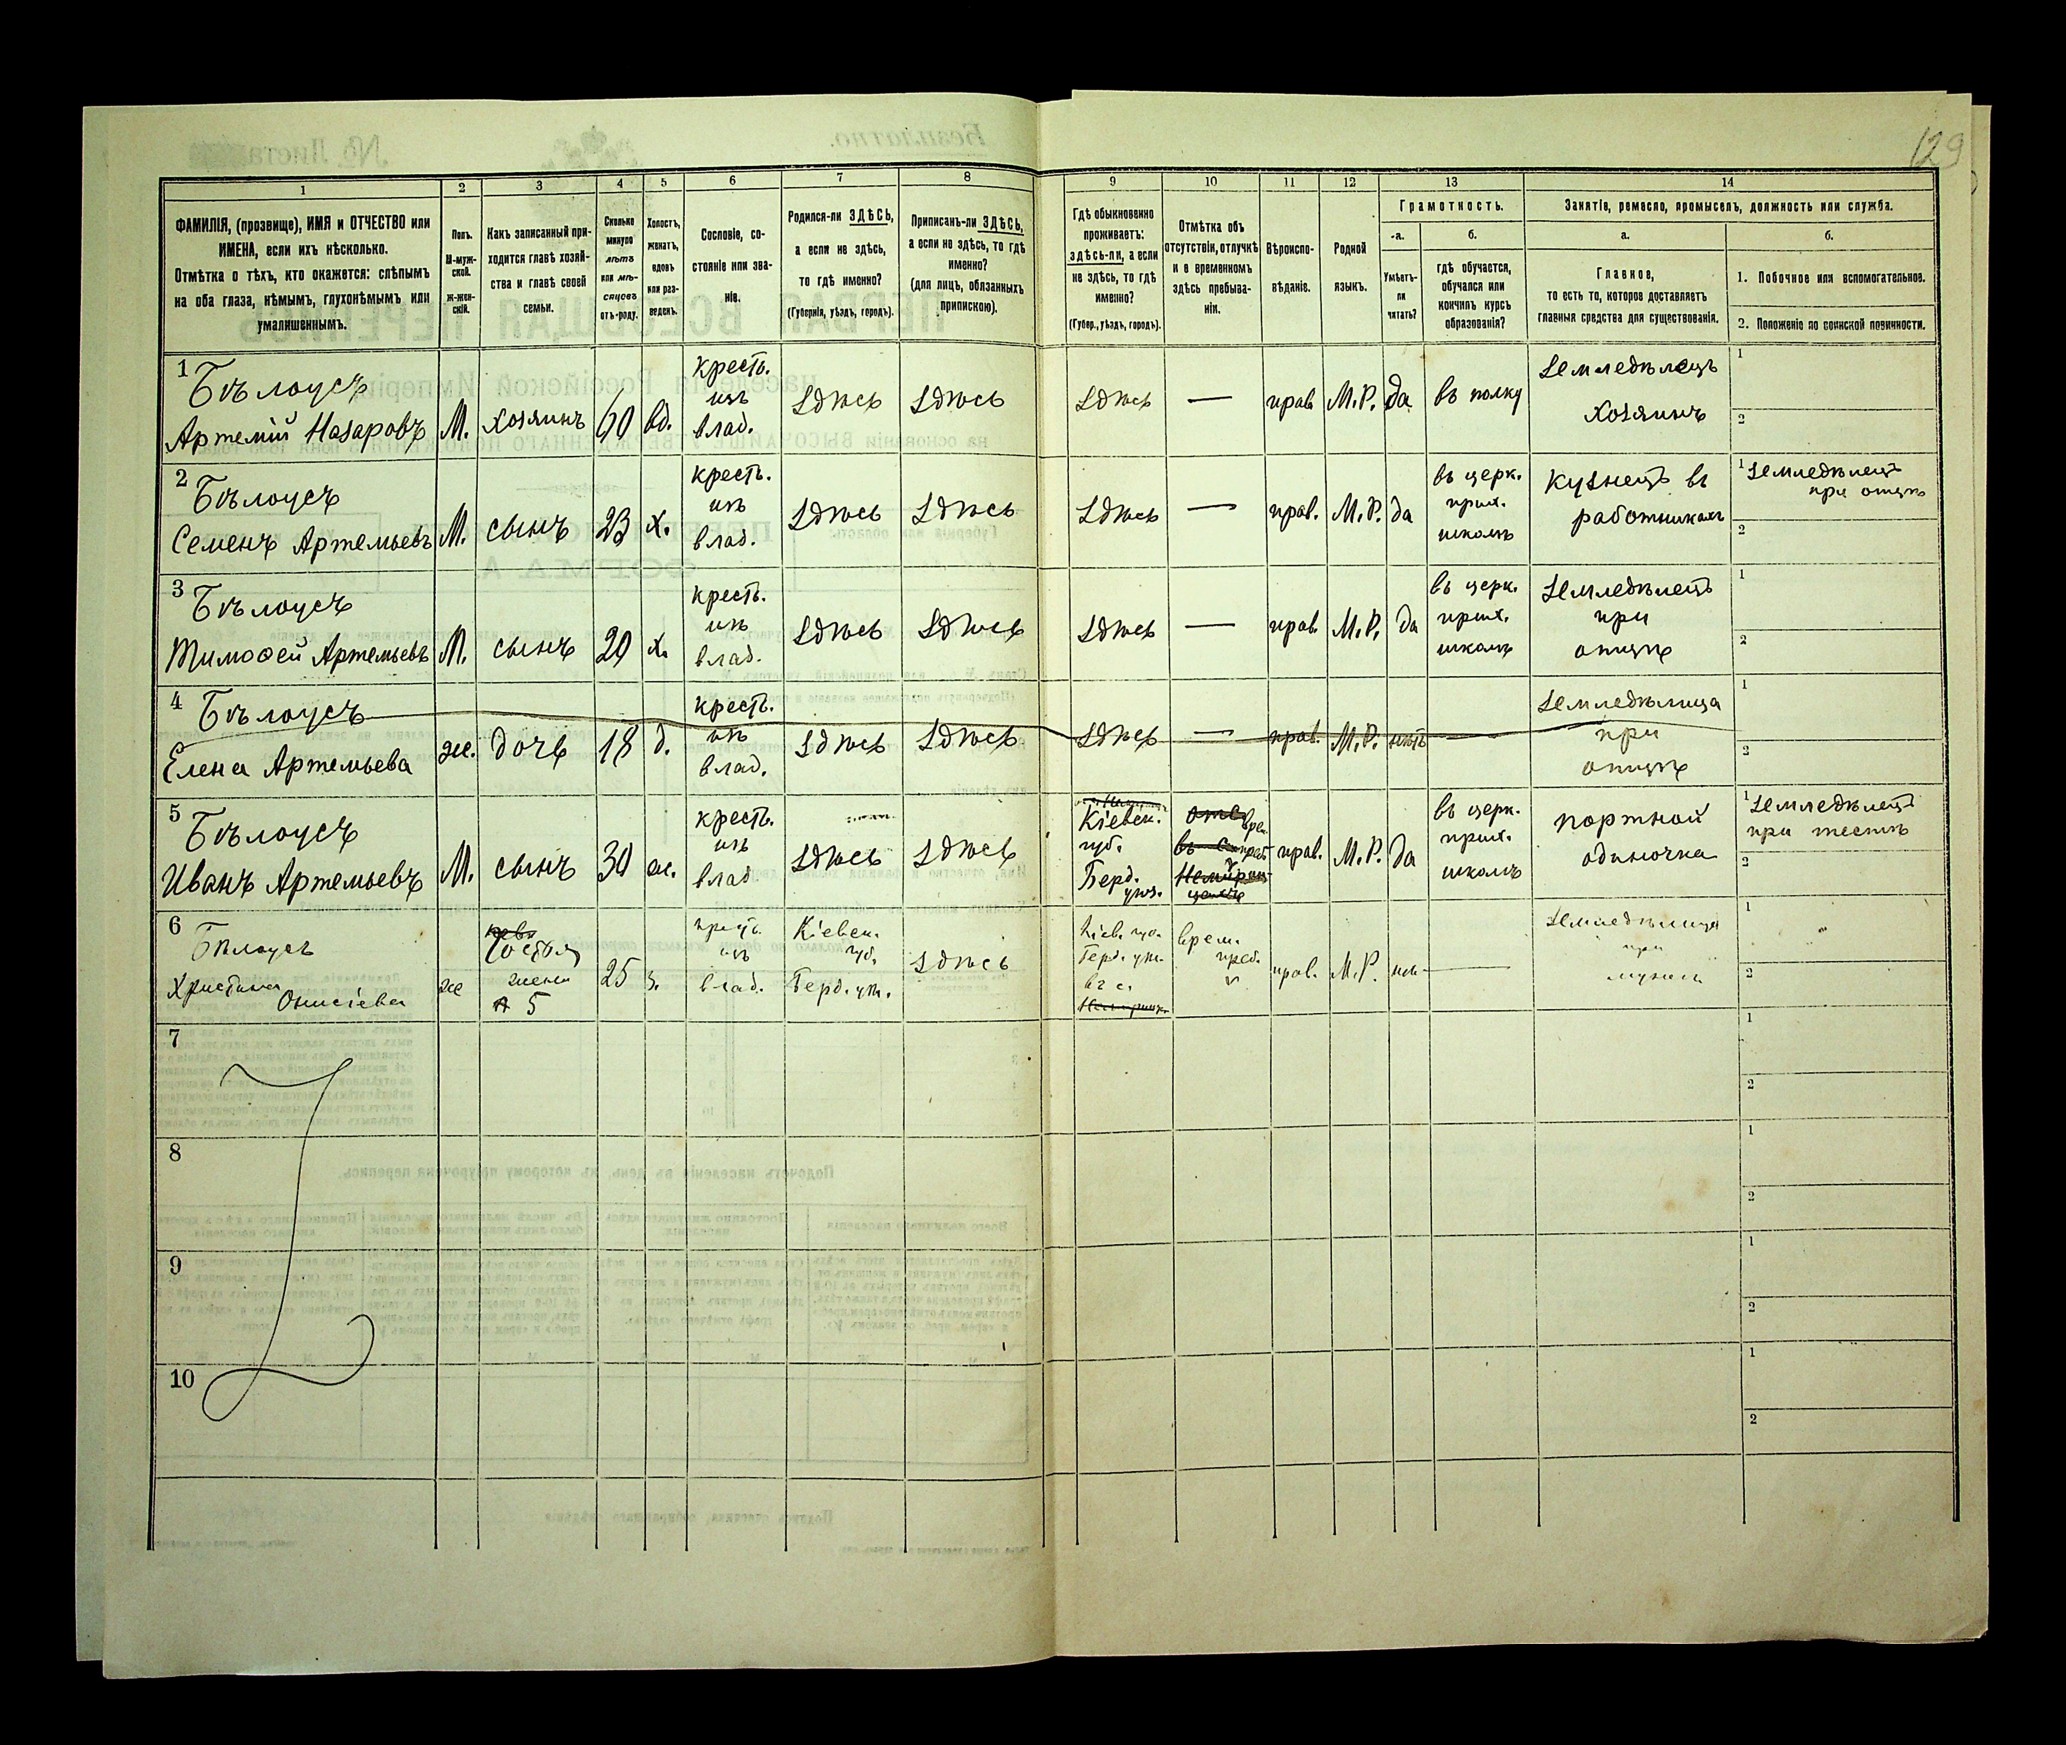 129
1 2 3 4 5 6 7 8 9 10 11 12 13 14
ФАМИЛІЯ, (прозвище), ИМЯ и ОТЧЕСТВО или
ИМЕНА, если ихъ нѣсколько.
Отмѣтка о тѣхъ, кто окажется: слѣпымъ
на оба глаза, нѣмымъ, глухонѣмымъ или
умалишеннымъ.
Полъ.
М-муж-
ской.
ж-жен-
скій.
Какъ записанный при-
ходится главѣ хозяй-
ства и главѣ своей
семьи.
Сколько
минуло
лѣтъ
или мѣ-
сяцевъ
отъ-роду.
Холостъ,
женатъ,
вдовъ
или раз-
веденъ.
Сословіе, со-
стояніе или зва-
ніе.
Родился-ли ЗДѢСЬ,
а если не здѣсь,
то гдѣ именно?
(Губернія, уѣздъ, городъ).
Приписанъ-ли ЗДѢСЬ,
а если не здѣсь, то гдѣ
именно?
(для лицъ, обязанныхъ
припискою).
Гдѣ обыкновенно
проживаетъ:
здѣсь-ли, а если
не здѣсь, то гдѣ
именно?
(Губер., уѣздъ, городъ).
Отмѣтка объ
отсутствіи, отлучкѣ
и о временномъ
здѣсь пребыва-
ніи.
Вѣроиспо-
вѣданіе.
Родной
языкъ.
Грамотность.
а.
Умѣетъ-
ли
читать?
б.
гдѣ обучается,
обучался или
кончилъ курсъ
образованія?
Занятіе, ремесло, промыселъ, должность или служба.
а.
Главное,
то есть то, которое доставляетъ
главныя средства для существованія.
б.
1. Побочное или вспомогательное.
2. Положеніе по воинской повинности.
1
Бѣлоусъ
Артемій Назаровъ
М.
хозяинъ
60
вд.
крестъ.
изъ
влад.
Здѣсь
Здѣсь
Здѣсь
—
прав.
М.Р.
да
въ полку
Земледѣлецъ
хозяинъ
1
2
2
Бѣлоусъ
Семенъ Артемьевъ
М.
сынъ
23
х.
крестъ.
изъ
влад.
Здѣсь
Здѣсь
Здѣсь
—
прав.
М.Р.
да
въ церк.
прих.
школѣ
Кузнецъ въ
работникахъ
1 Земледѣлецъ
при отцѣ
2
3
Бѣлоусъ
Тимофей Артемьевъ
М.
сынъ
20
х.
крестъ.
изъ
влад.
Здѣсь
Здѣсь
Здѣсь
—
прав.
М.Р.
да
въ церк.
прих.
школѣ
Земледѣлецъ
при
отцѣ
1
2
4
Бѣлоусъ
Елена Артемьева
ж.
дочь
18
д.
крестъ.
изъ
влад.
Здѣсь
Здѣсь
Здѣсь
—
прав.
М.Р.
нѣтъ
—
Земледѣлица
при
отцѣ
1
2
5
Бѣлоусъ
Иванъ Артемьевъ
М.
сынъ
30
ж.
крестъ.
изъ
влад.
Здѣсь
Здѣсь
Кіевск.
губ.
Берд.
уѣз.
прав.
М.Р.
да
въ церк.
прих.
школѣ
портной
одиночка
1 Земледѣлецъ
при тестѣ
2
6
Бѣлоусъ
Христина
Онисіева
ж
жена
5
25
з.
крест.
изъ
влад.
Кіевск.
губ.
Берд. уѣз.
Здѣсь
Кіев. губ.
Берд. уѣз.
въ с.
врем.
преб.
прав.
М.Р.
—
Земледѣлица
при
мужѣ
1
2
7
1
2
8
1
2
9
1
2
10
1
2